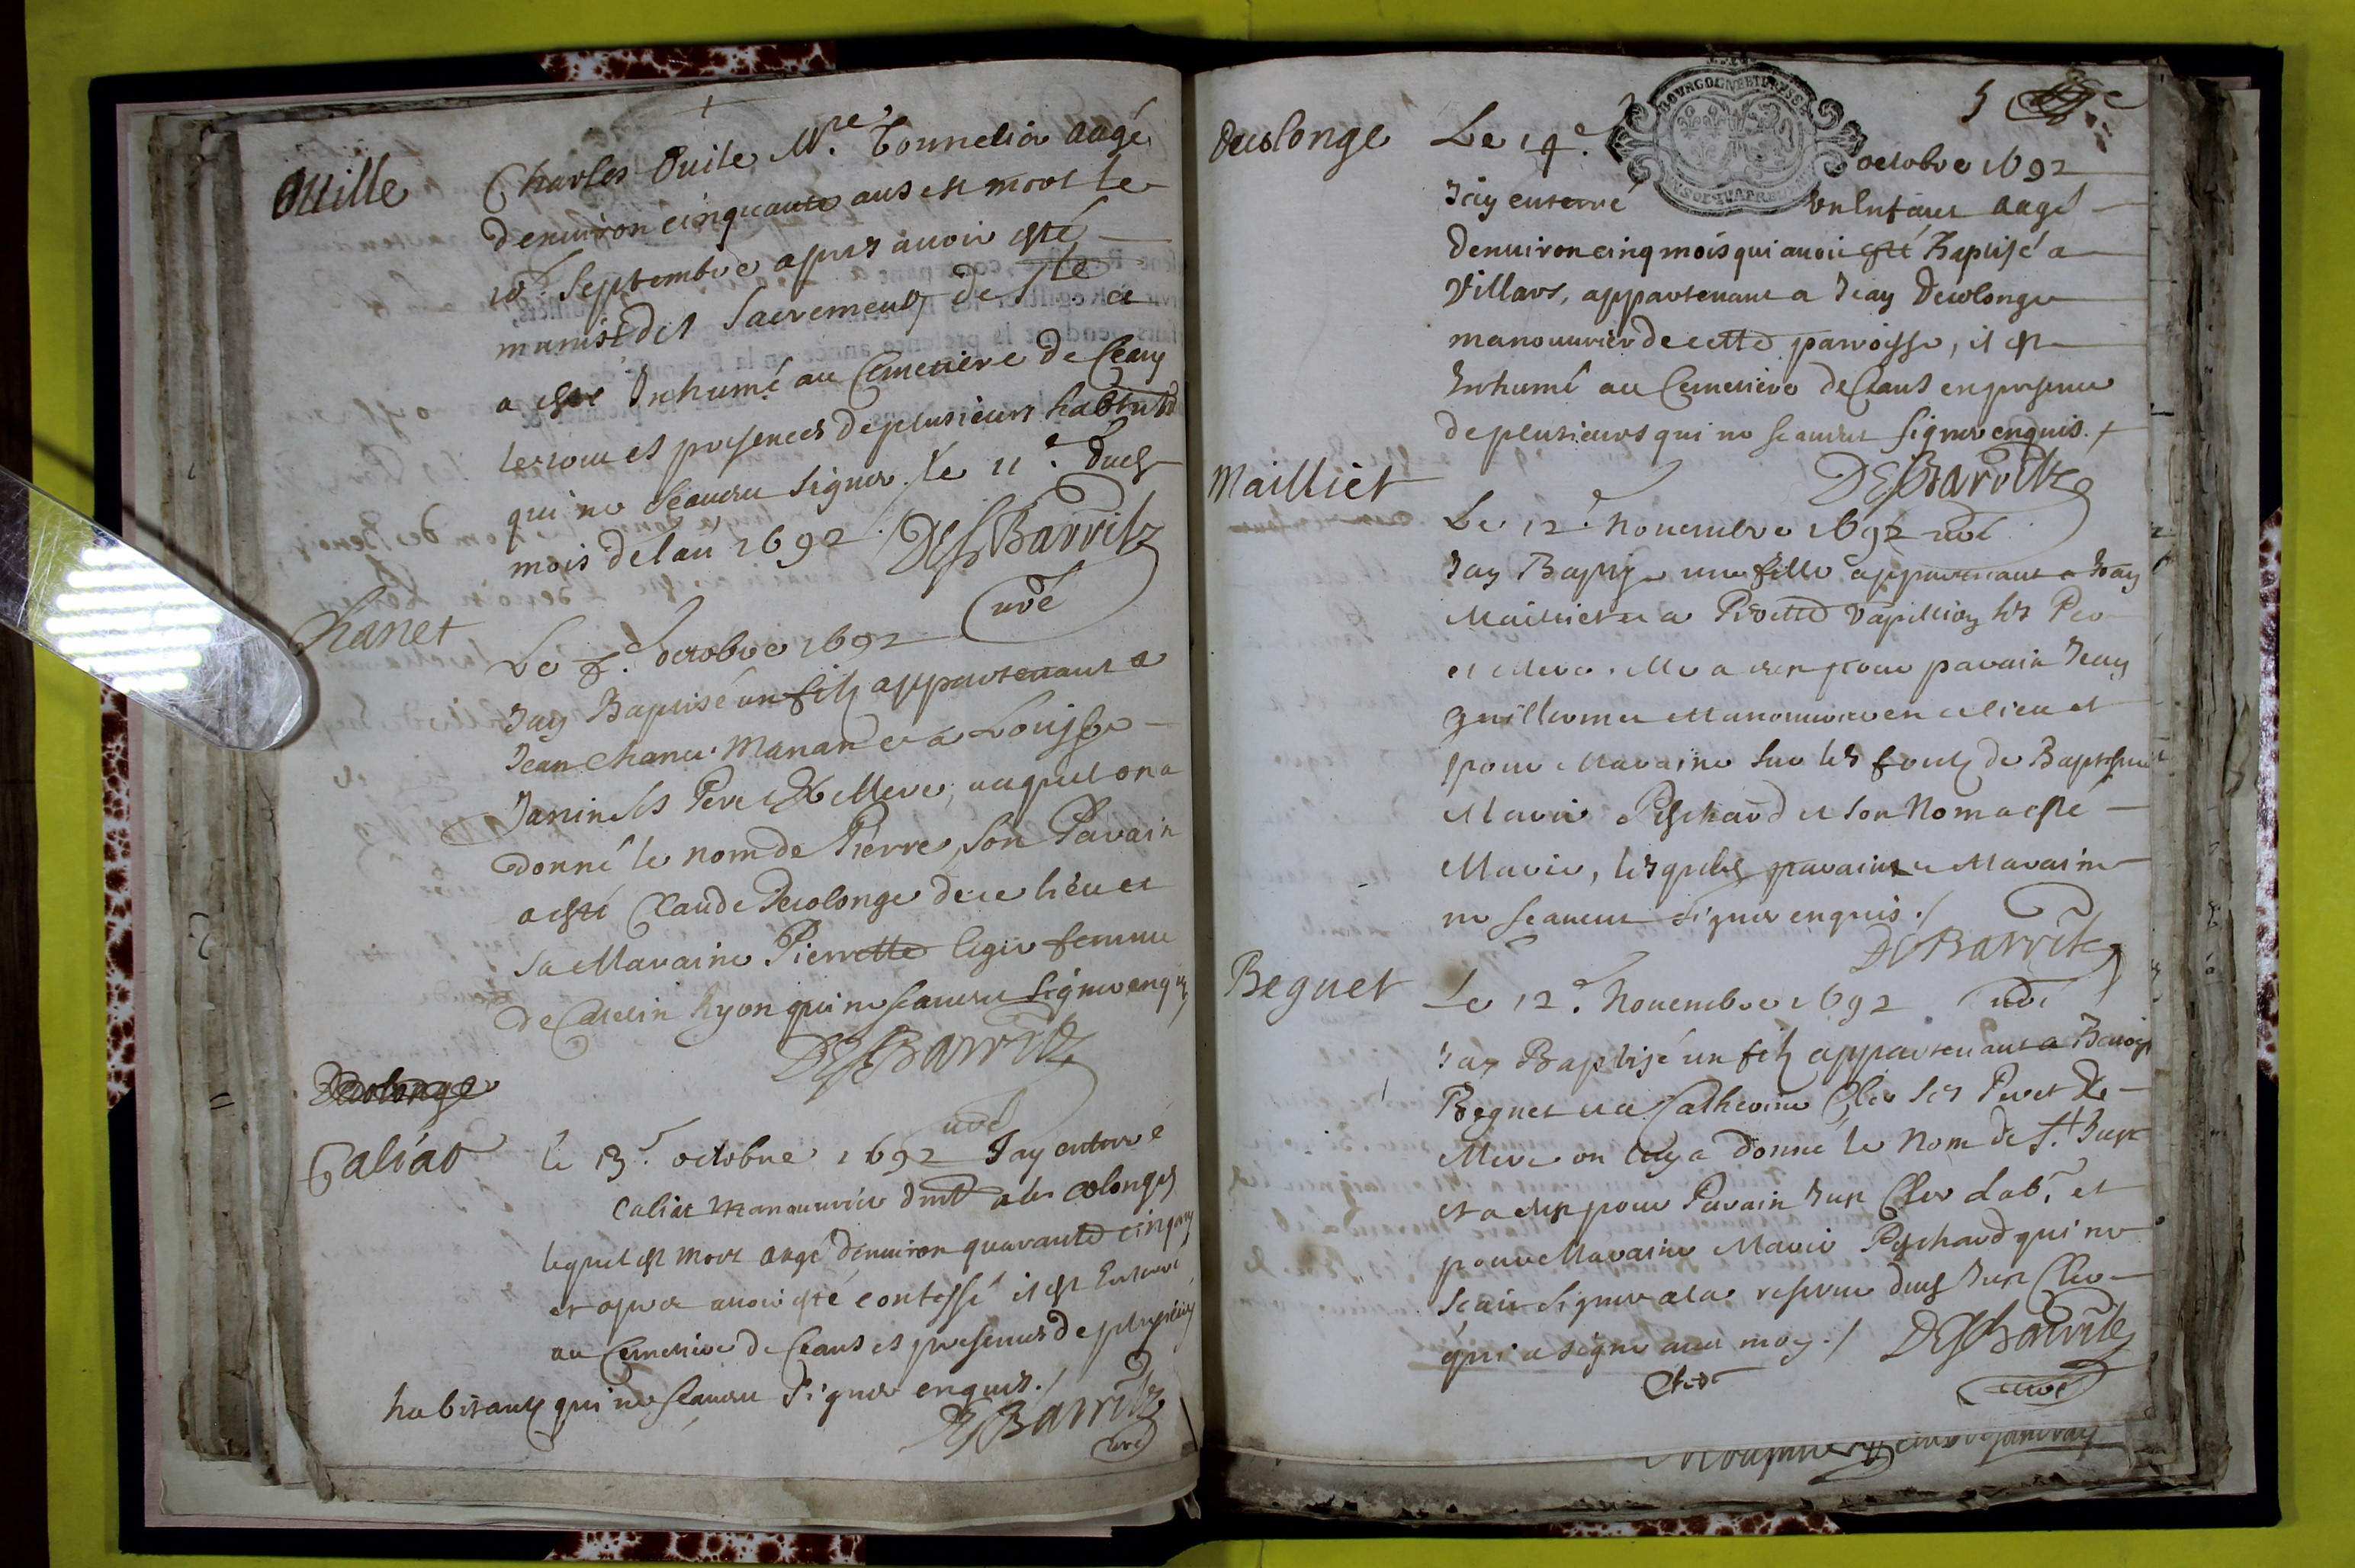 Ouille
Charles Ouile Mre Tonnelier aagé
denuiron cinquante ans est mort le
10e Septembre apres auoir esté
munist des Sacrements de Ste
a esté Inhumé au Cemetiere de Ceans
es presences de plusieurs habitants
qui ne sceauent signer. le 11e dud
mois de lan 1692 DESBarritz
curé
Chanet
Le octobre 1692
Jay Baptisé un filz appartenant a
Jean Chanet Manand et a Louisse
Janin ses Pere & Mere, auquel on a
donné le nom de Pierre, son Parain
a esté Claude Decolonge de ce lieu et
sa Maraine Pierrette ligier femme
de qui ne sceauent signer enquis
DESBarritz
curé
Decolonge
Caliat
le 13e octobre 1692 Jay enterré
Caliat Manouurier dmt a les colonges
lequel est mort aagé denuiron quarante cinq ans
et apres auoir esté confessé il est Enterré
au Cemetiere de Ceans es presences de plusieurs
habitants qui ne sceauent signer enquis./
DESBarritz
curé
5
BOURGOGNE ET BRESSE
Decolonge
Le 14e octobre 1692
Jay enterré un Enfant aagé
denuiron cinq mois qui auoit esté Baptisé a
Villars, appartenant a Jean Decolonge
manouurier de cette parroisse, il est
Inhumé au Cemetiere de Ceans en presence
de plusieurs qui ne sceauent signer enquis./
DESBarritz
curé
Mailliet
Le 12e Nouembre 1692
Jay Baptisé une fille appartenant a Jean
Mailliet et a Pierrette Papillion ses Pere
et Mere. elle a eu pour parain Jean
Guillermet Manouurier en ce lieu et
pour Maraine sur les fonts de Baptesme
Marie Peschard et son Nom a esté
Marie, lesquels parains et Maraine
ne sceauent signer enquis./
DESBarritz
curé
Beguet
Le 12e Nouembre 1692
Jay Baptisé un filz appartenant a Benoist
Beguet et a Catherine Cler ses Pere &
Mere on luy a donné le Nom de St Just
et a eu pour Parain Just Cler Labr et
pour Maraine Marie Peschard qui ne
scait signer a la reserue dud Just Cler
qui a signé auec moy./ DESBarritz
Cler
curé